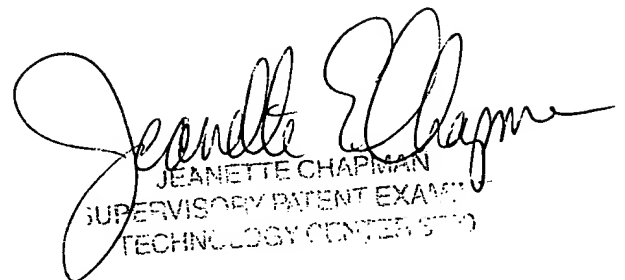 Jeanette E Chapman
JEANETTE CHAPMAN
SUPERVISORY PATENT EXAMI
TECHNOLOGY CENTER